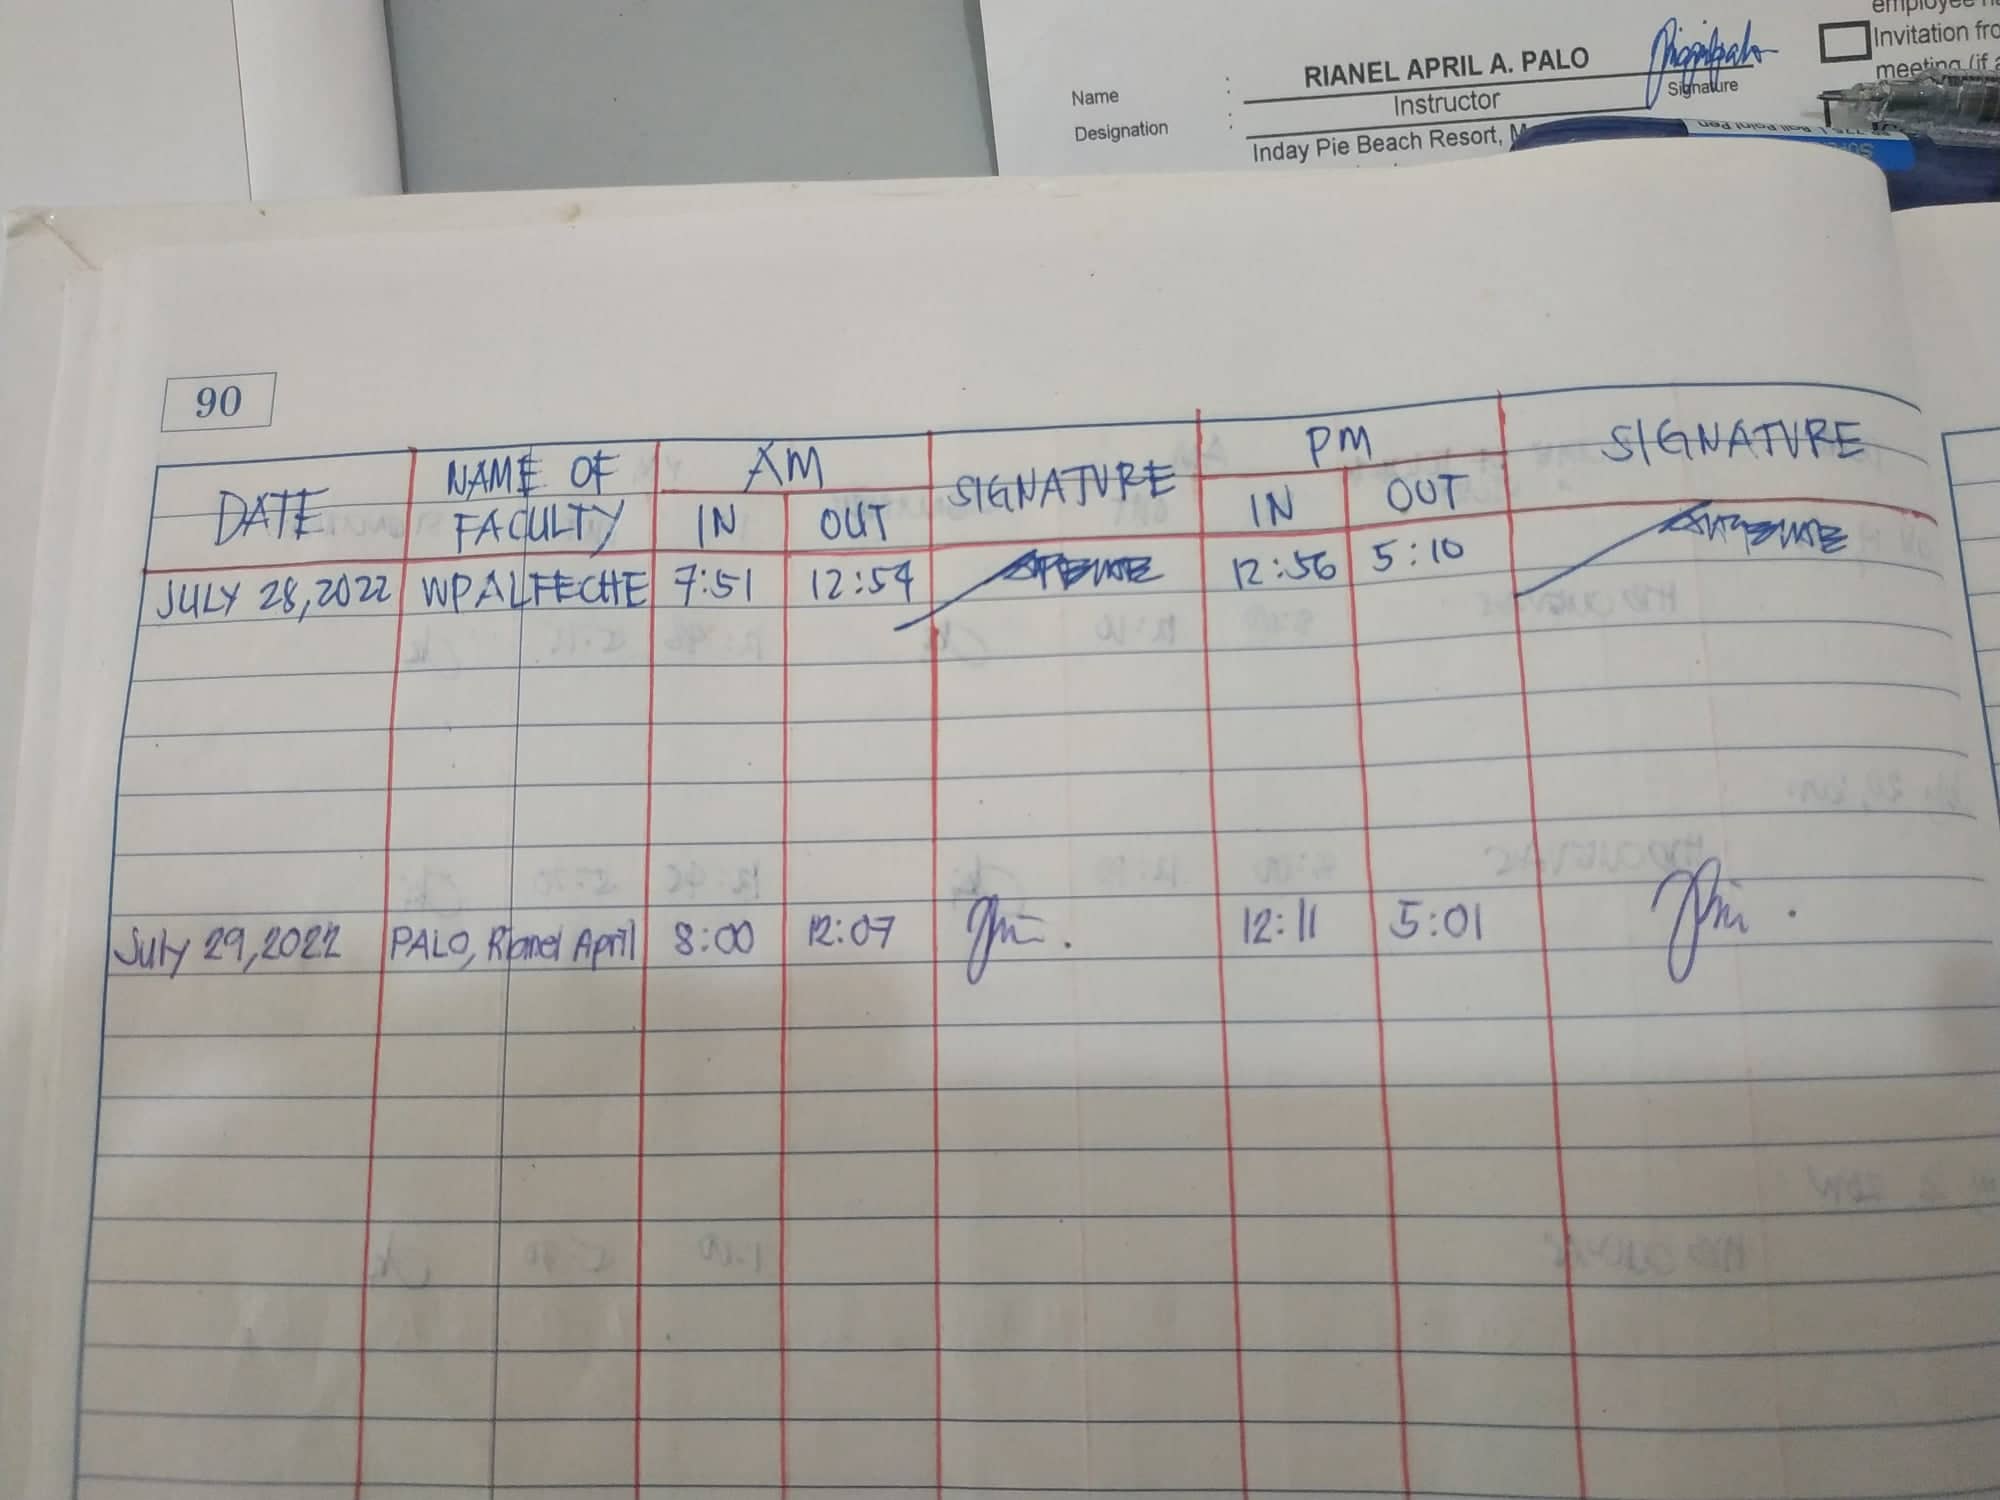 employee
Invitation
meeting (if
RIANEL APRIL A. PALO
Name :
Signature
Instructor
Designation :
Inday Pie Beach Resort,
90
DATE NAME OF FACULTY AM SIGNATURE PM SIGNATURE
IN OUT IN OUT
JULY 28, 2022 WPALFECHE 7:51 12:54 12:56 5:10
July 29, 2022 PALO, Rianel April 8:00 12:07 12:11 5:01